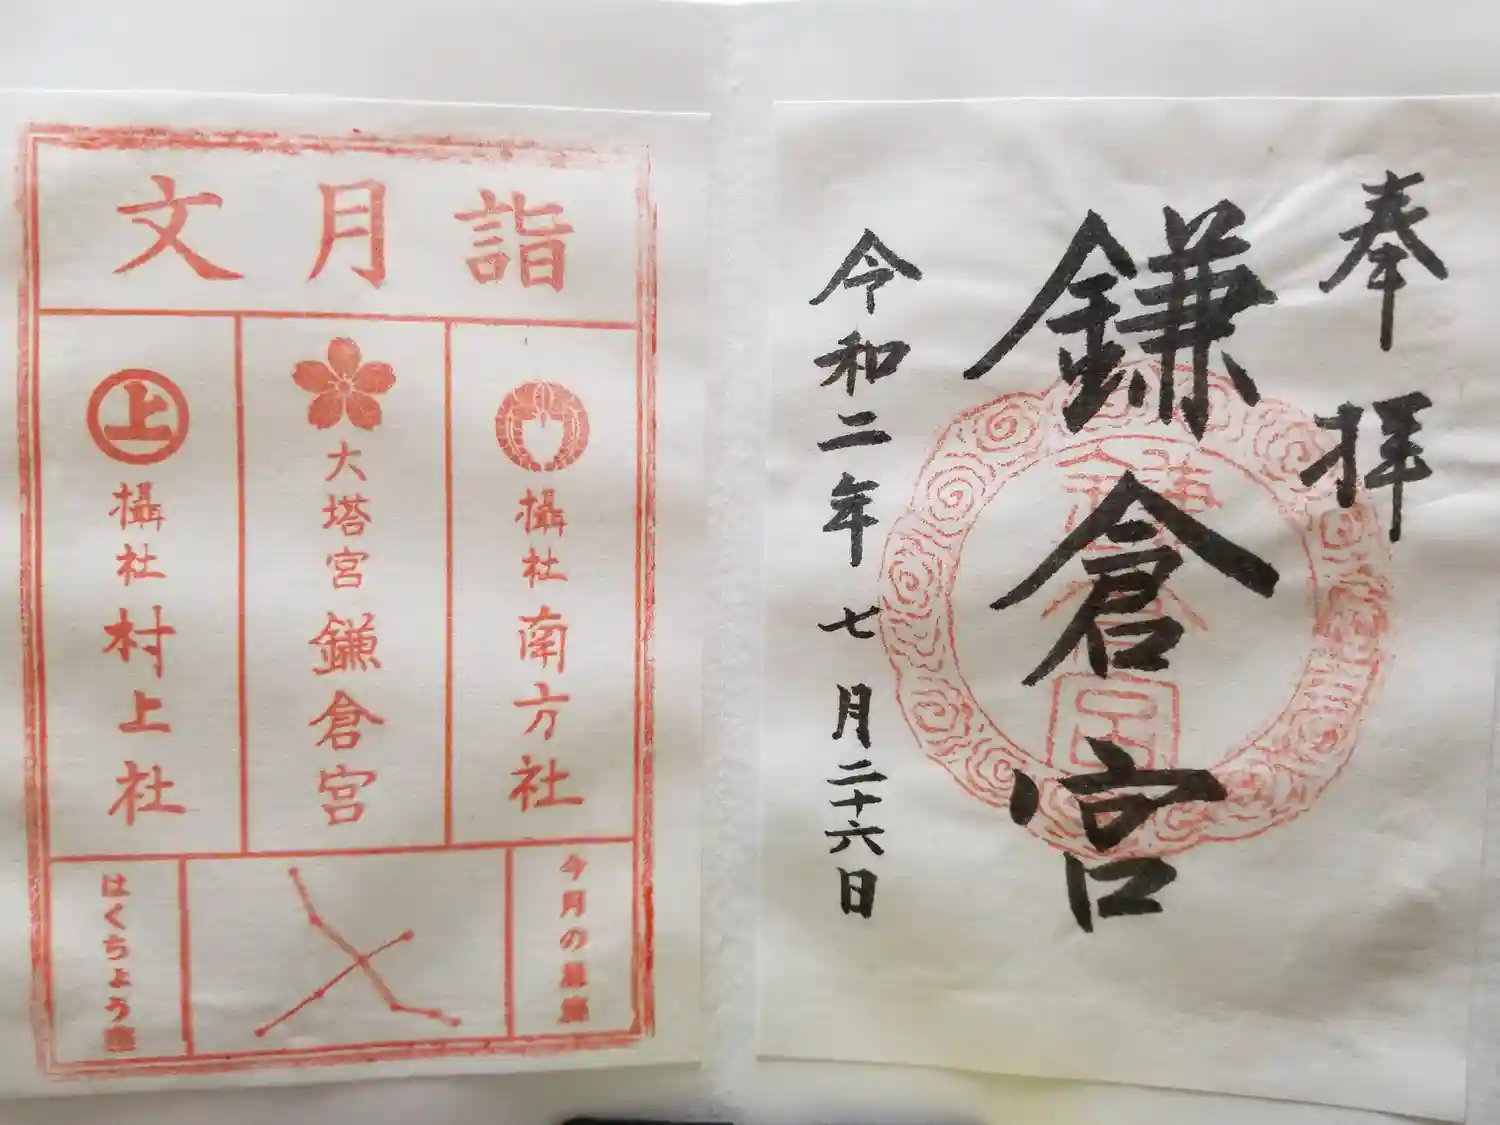 奉拝
鎌倉宮
令和二年七月二十六日
文月詣
攝社 南方社
大塔宮 鎌倉宮
上
攝社 村上社
今月の星座
はくちょう座